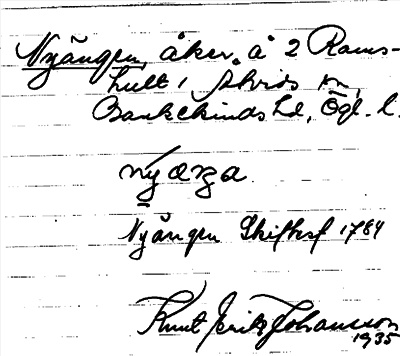 Nyängen, åker å 2 Rams-
hult, Åtvids sn,
Bankekinds hd, Ögl. l.
nyæŋa
Nyängen Skiftesf 1784
Knut Erik Johansson
1935